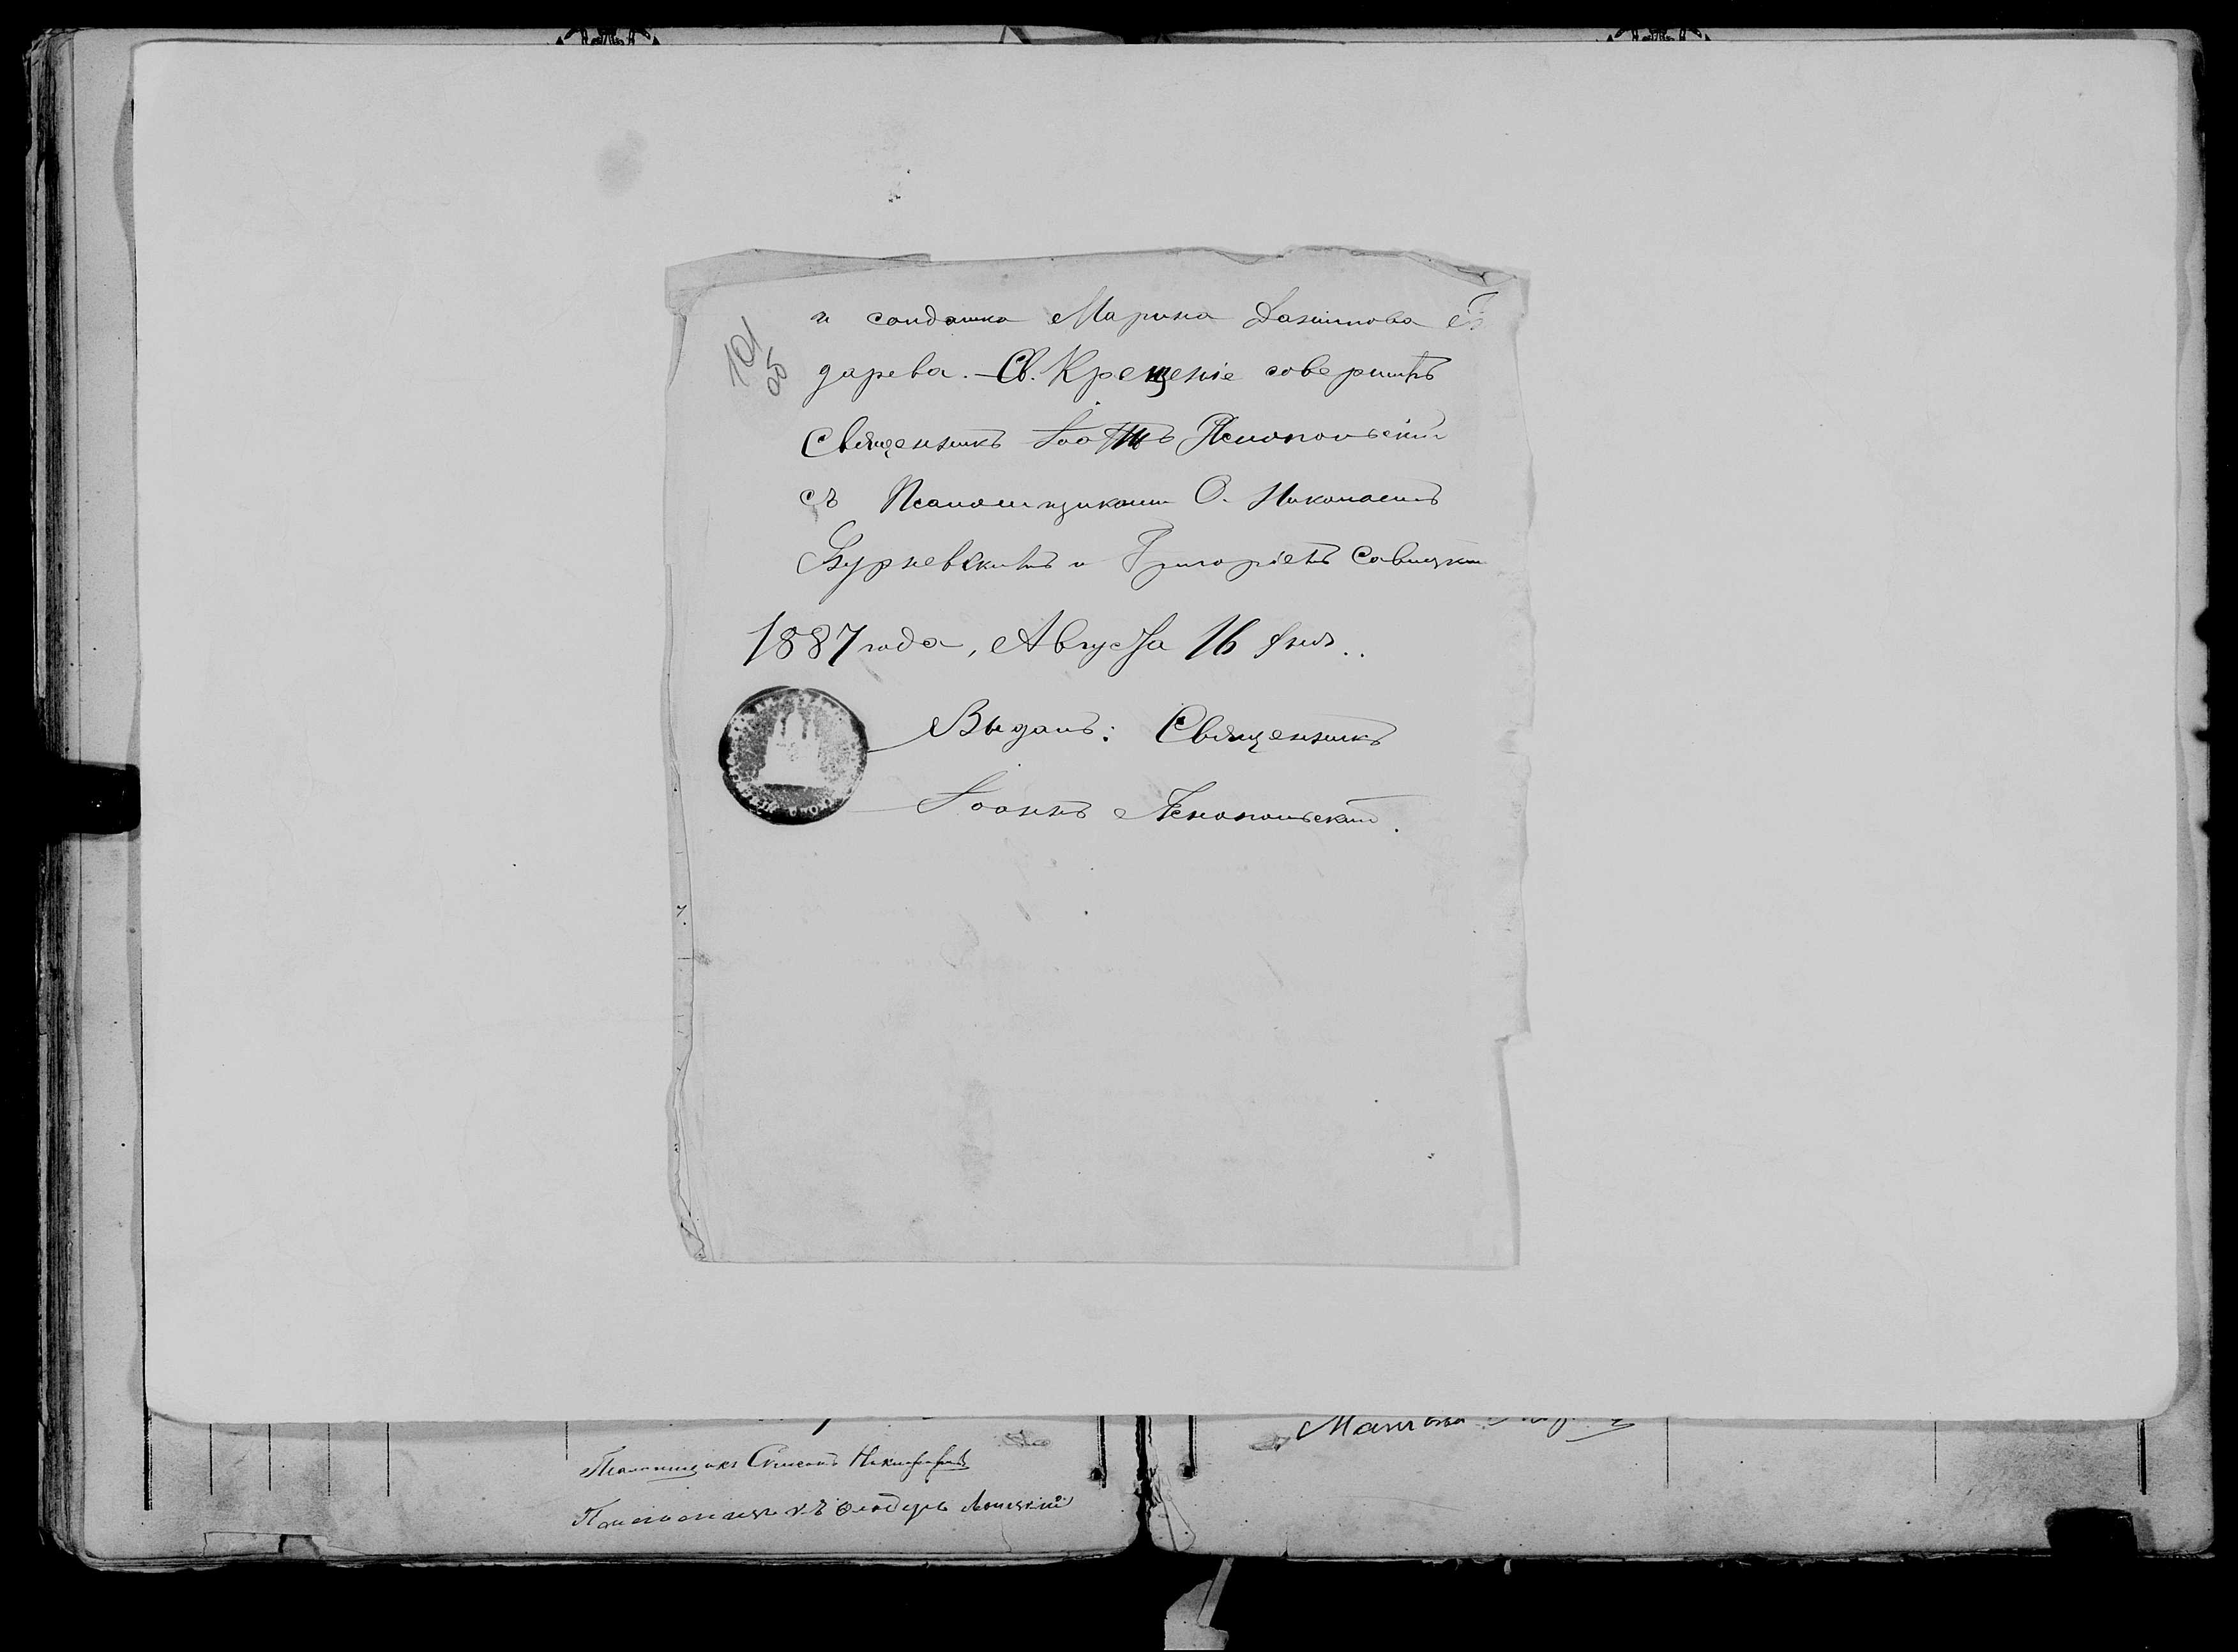 и солдатка Марина Данилова Го
дарева. – Св. Крещеніе совершилъ
Священникъ Іоаннъ Яснопольскій
съ Псаломщиками О. Николаемъ
Бурневскимъ и Григоріемъ Савицким
1887 года, Августа 16 дня..
Выдалъ: Священникъ
Іоаннъ Яснопольскій.
101
об
Псаломщикъ Симеонъ Никифоровъ
Псаломщикъ Ѳеодоръ